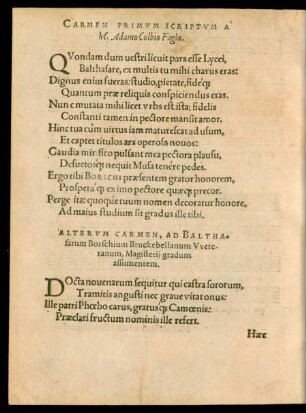 CARMEN PRIMVM SCRIPTVM A'
M. Adamo Colbio Faglo.
QVondam dum uestri licuit pars esse Lycei,
Balthasare, ex multis tu mihi charus eras:
Dignus enim fueras: studio, pietate, fideq́;
Quantum præ reliquis conspiciendus eras.
Nunc mutata mihi licet vrbs est ista: fidelis
Constanti tamen in pectore mansit amor.
Hinc tua cùm virtus iam maturescat ad usum,
Et captet titulos ars operosa nouos:
Gaudia mirifico pulsant mea pectora plausu,
Desuetosq́; nequit Musa tenere pedes.
Ergo tibi BORSCHI præsentem grator honorem,
Prospera q́; ex imo pectore quæq́; precor.
Perge ita: quoq́; ie tuum nomen decoratur honore,
Ad maius studium sit gradus ille tibi.
ALTERVM CARMEN, AD BALTHA-
sarum Borschium Bruckebellanum Vvete-
ranum, Magisterij gradum
assumentem.
DOcta nouenarum sequitur qui castra sororum,
Tramitis angusti nec graue vitat onus:
Ille patri Phœbo carus, gratusq́; Camœnis:
Præclari fructum nominis ille refert.
Hæc